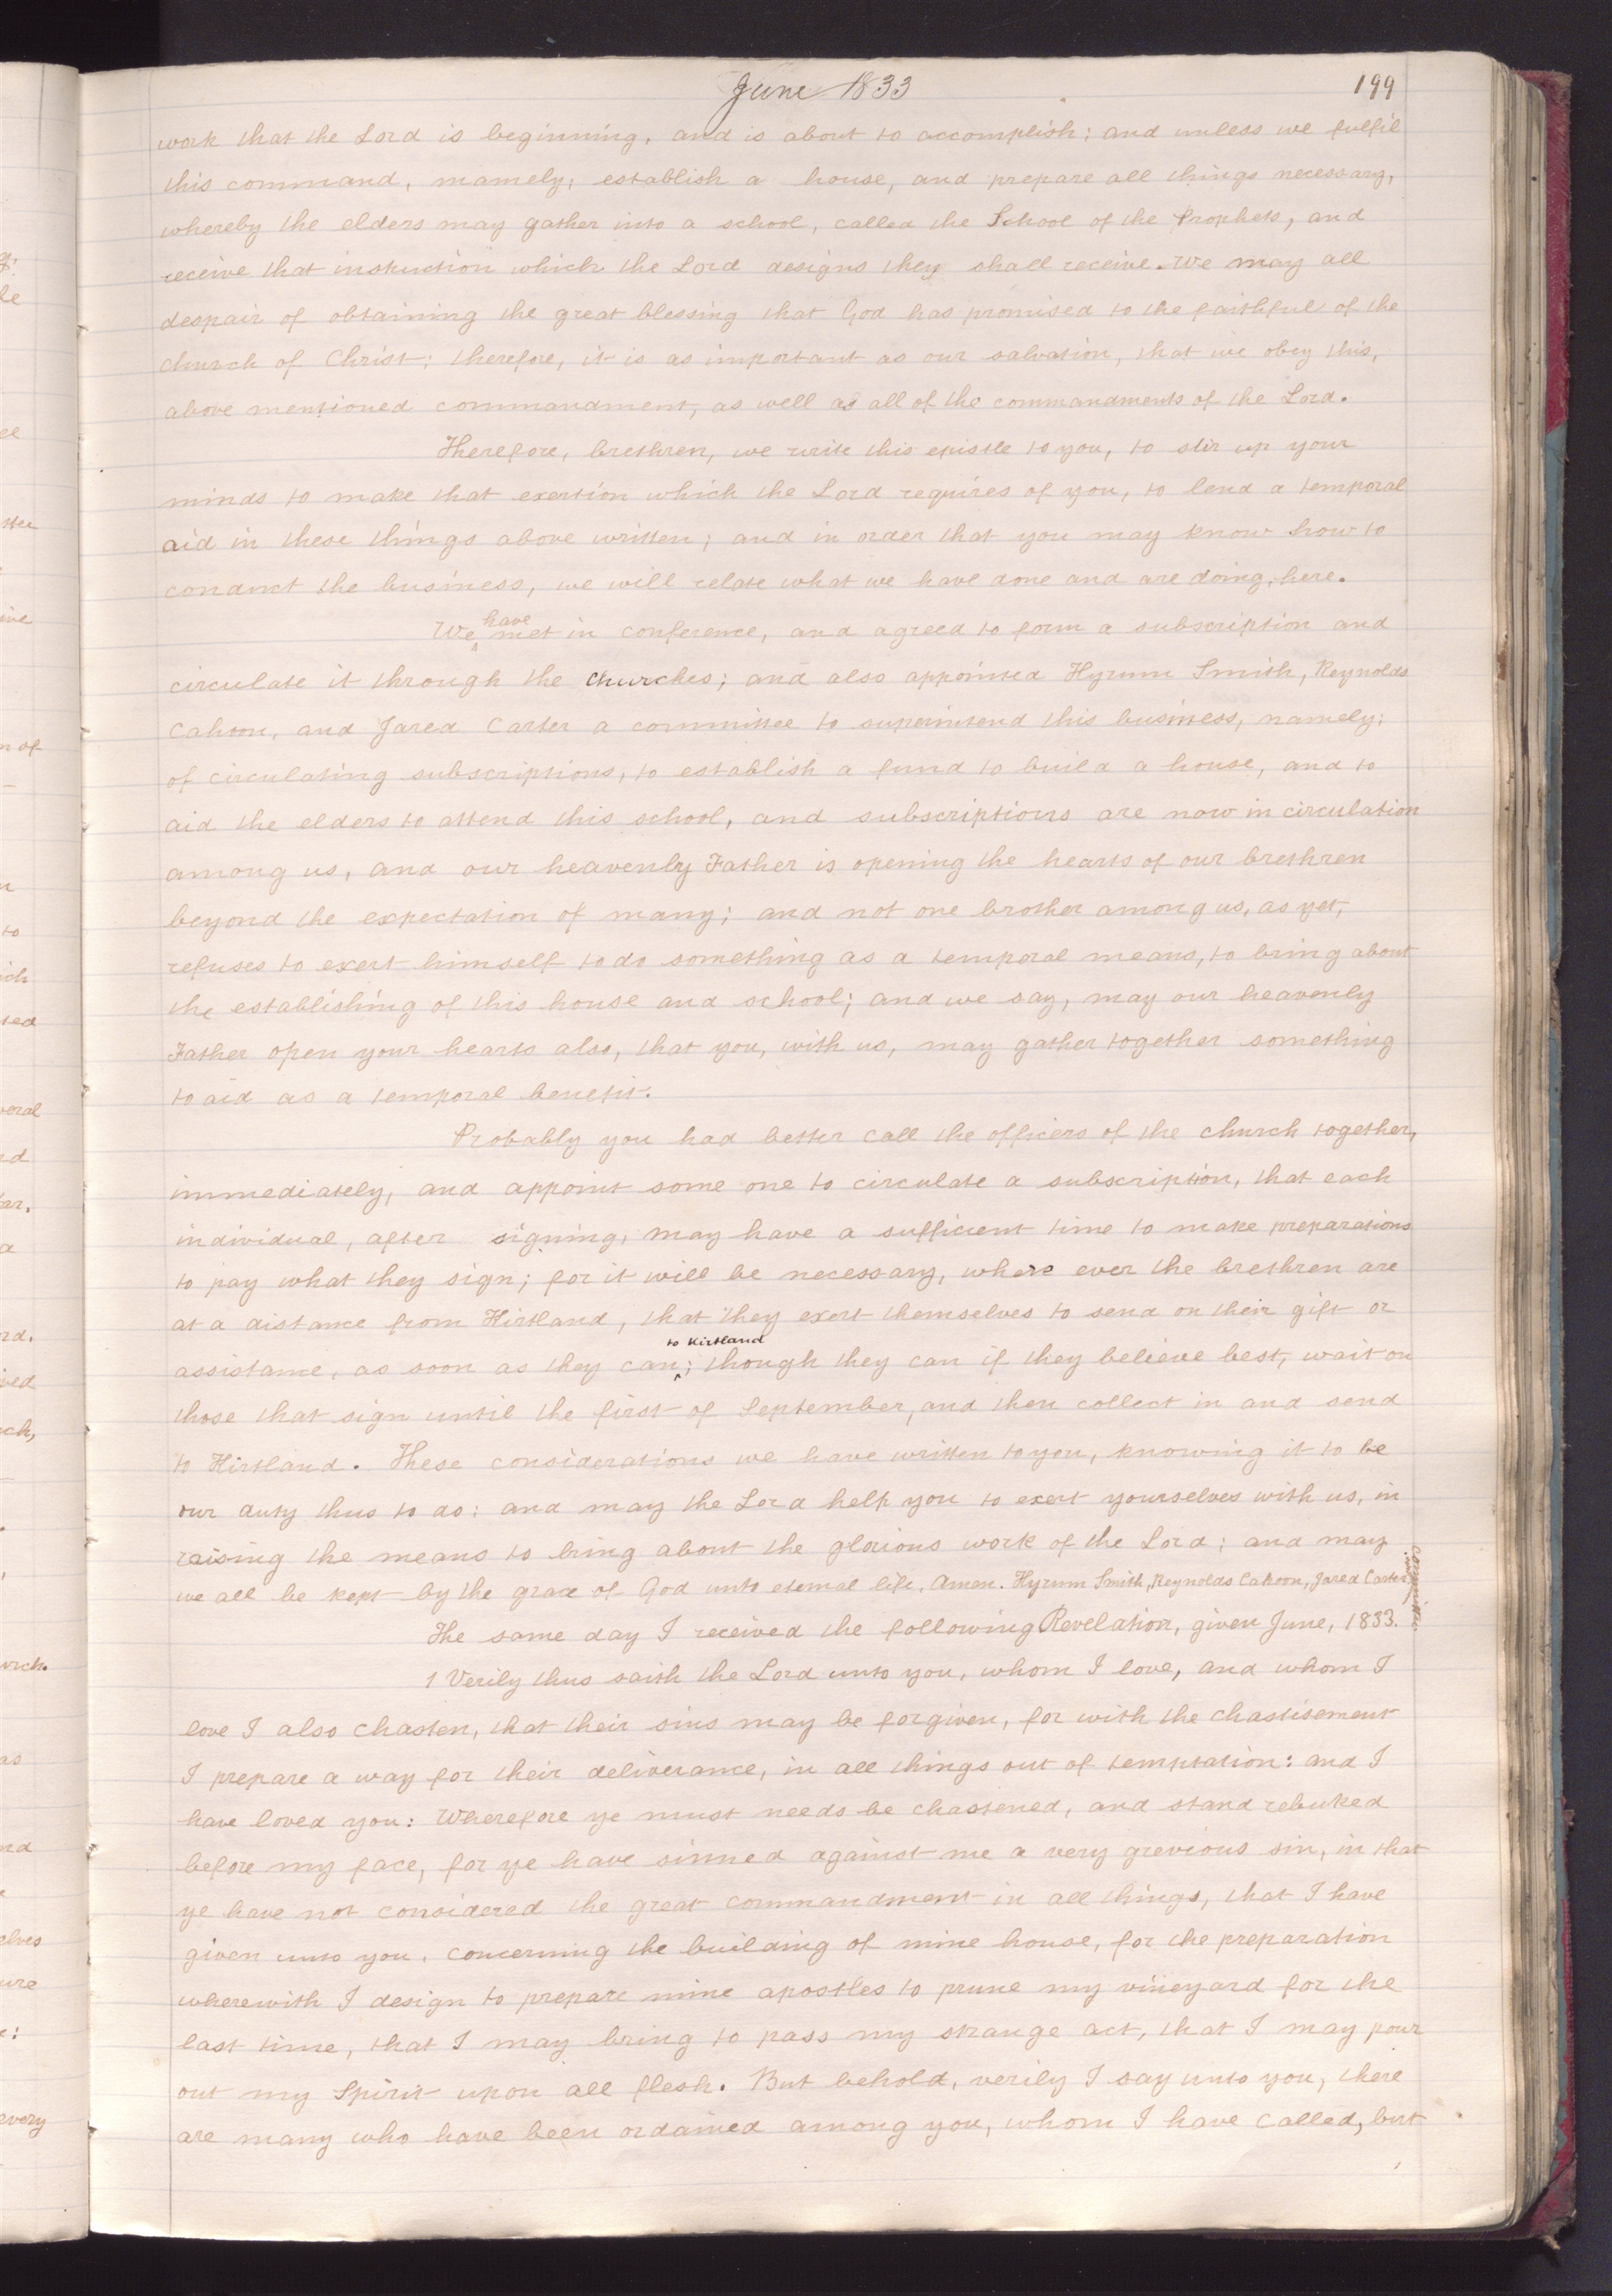 June 1833
199
work that the Lord is beginning, and is about to accomplish; and unless we fulfil
this command, namely; establish a house, and prepare all things necessary,
whereby the elders may gather into a school, called the School of the Prophets, and
receive that instuction which the Lord designs they shall receive. We may all
despair of obtaining the great blessing that God has promised to the faithful of the
church of Christ; therefore, it is as important as our salvation, that we obey this,
above mentioned commandment, as well as all of the commandments of the Lord.
Therefore, brethren, we write this epistle to you, to stir up your
minds to make that exertion which the Lord requires of you, to lend a temporal
aid in these things above written; and in order that you may know how to
conduct the business, we will relate what we have done and are doing, here.
We have met in conference, and agreed to form a subscription and
circulate it through the churches; and also appointed Hyrum Smith, Reynolds
Cahoon, and Jared Carter a committee to superintend this business, namely;
of circulating subscriptions, to establish a fund to build a house, and to
aid the elders to attend this school, and subscriptions are now in circulation
among us, and our heavenly Father is opening the hearts of our brethren
beyond the expectation of many; and not one brother among us, as yet,
refuses to exert himself to do something as a temporal means, to bring about
the establishing of this house and school; and we say, may our heavenly
Father open your hearts also, that you, with us, may gather together something
to aid as a temporal benefit.
Probably you had better call the officers of the church together,
immediately, and appoint some one to circulate a subscription, that each
individual, after signing, may have a sufficient time to make preparations
to pay what they sign; for it will be necessary, where ever the brethren are
at a distance from Kirtland, that they exert themselves to send on their gift or
assistance, as soon as they can to Kirtland; though they can if they believe best, wait on
those that sign until the first of September, and then collect in and send
to Kirtland. These considerations we have written to you, knowing it to be
our duty thus to do: and may the Lord help you to exert yourselves with us, in
raising the means to bring about the glorious work of the Lord; and may
we all be kept by the grace of God unto eternal life, Amen. Hyrum Smith, Reynolds Cahoon, Jared Carter Committee.
The same day I received the following Revelation, given June, 1833.
1 Verily thus saith the Lord unto you, whom I love, and whom I
love I also chasten, that their sins may be forgiven, for with the chastisement
I prepare a way for their deliverance, in all things out of temptation: and I
have loved you: Wherefore ye must needs be chastened, and stand rebuked
before my face, for ye have sinned against me a very grevious sin, in that
ye have not considered the great commandment in all things, that I have
given unto you, concerning the building of mine house, for the preparation
wherewith I design to prepare mine apostles to prune my vineyard for the
last time, that I may bring to pass my strange act, that I may pour
out my Spirit upon all flesh. But behold, verily I say unto you, there
are many who have been ordained among you, whom I have called, but